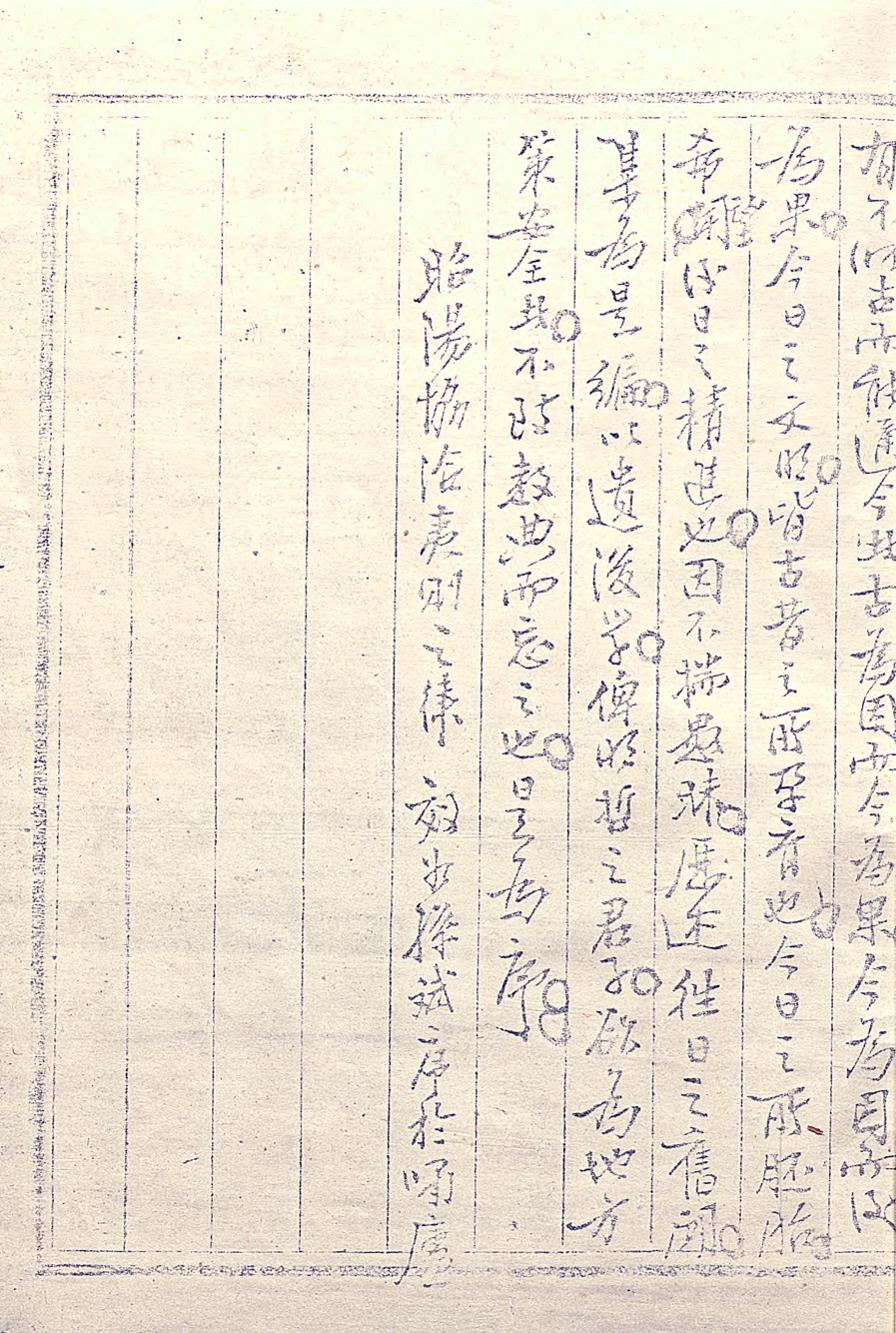 有不明古而能通今此古為因而今為果今為因而後
為果今日之文明皆古昔之所孕育也今日之所胚胎
希望後日之精進也因不揣愚昧歷述往日之舊聞
集為是編以遺後學俾明哲之君子欲為地方
策安全者不致數典而忘之也是為序
昭陽協洽夷則之律 孫斌序於嘯廬